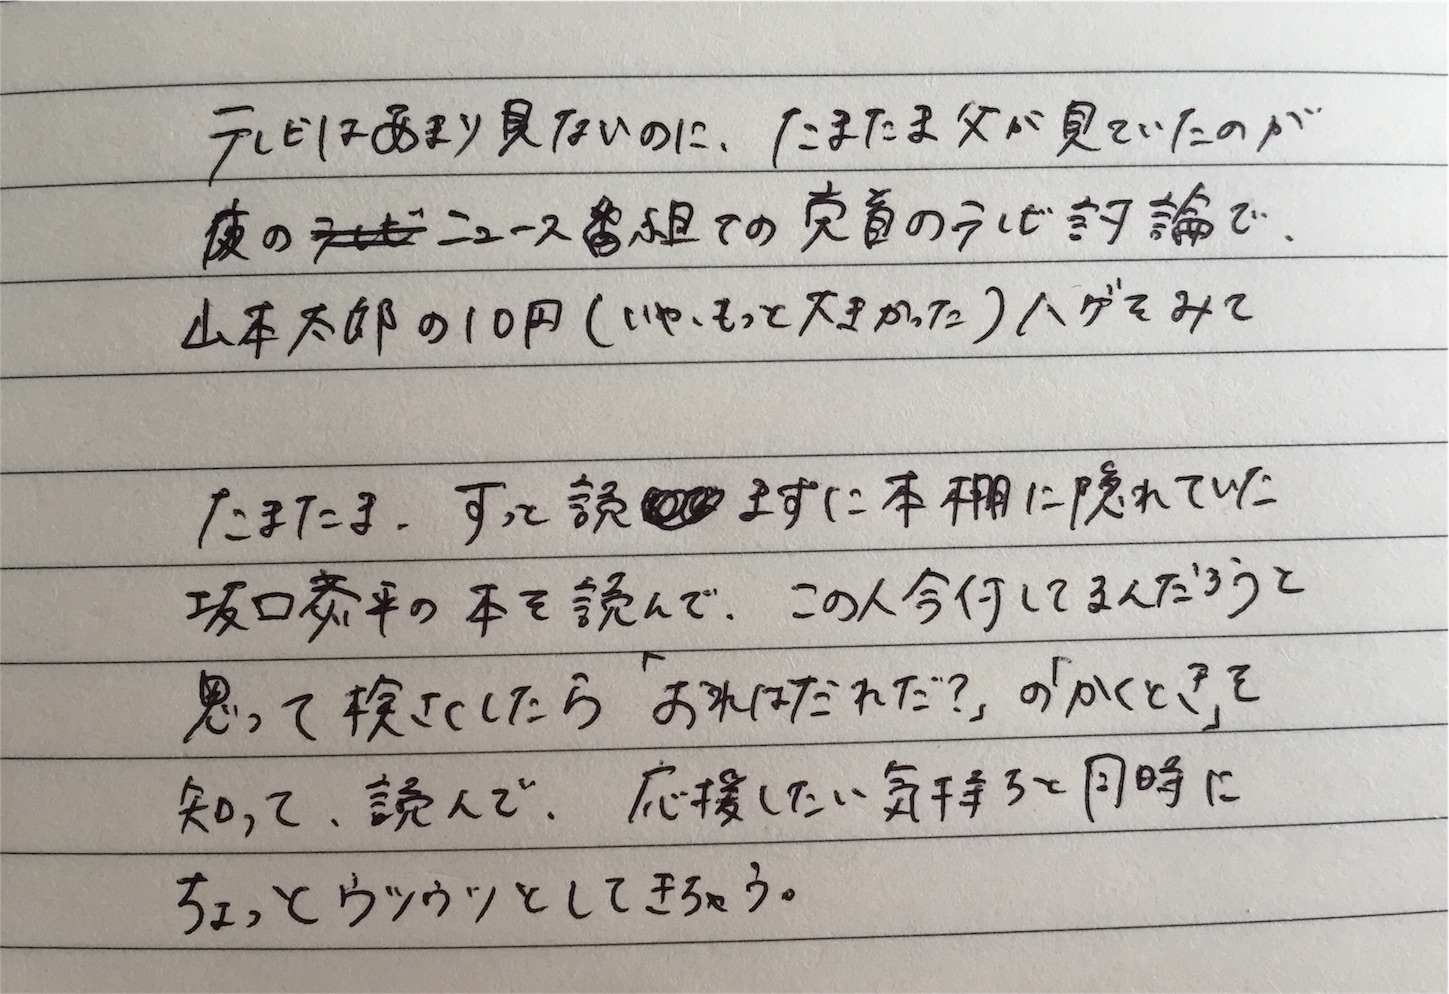 テレビはあまり見ないのに、たまたま父が見ていたのが
夜の ニュース番組での党首のテレビ討論で、
山本太郎の10円(いや、もっと大きかった)ハゲをみて
たまたま、ずっと読まずに本棚に隠れていた
坂口恭平の本を読んで、この人今何してるんだろうと
思って検さくしたら「おれはだれだ?」の「かくとき」を
知って、読んで、応援したい気持ちと同時に
ちょっとウツウツとしてきちゃう。